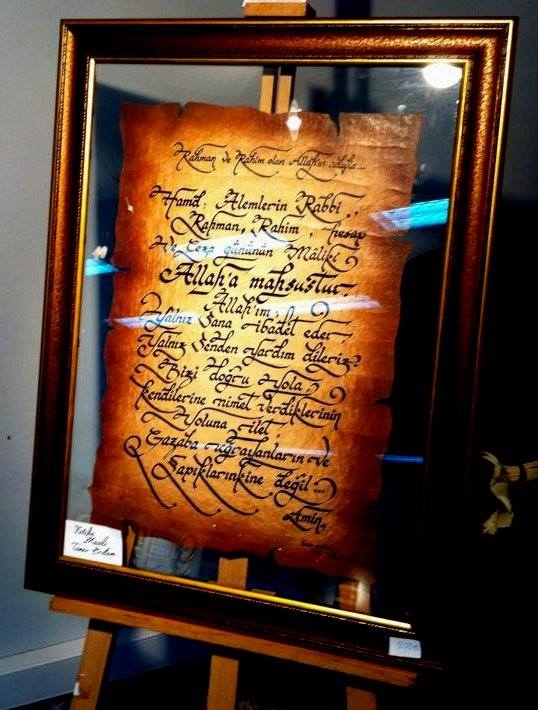 Rahman ve Rahim olan Allah'ın adıyla...
Hamd, Alemlerin Rabbi,
Rahman, Rahim, hesap
Ve Ceza gününün Mâliki
Allah'a mahsustur.
Allah'ım,
Yalnız Sana ibadet eder,
Yalnız Senden yardım dileriz.
Bizi doğru Yola,
kendilerine nimet verdiklerinin
Yoluna ilet,
Gazaba uğrayanların ve
Sapıklarınkine değil...
Emin,